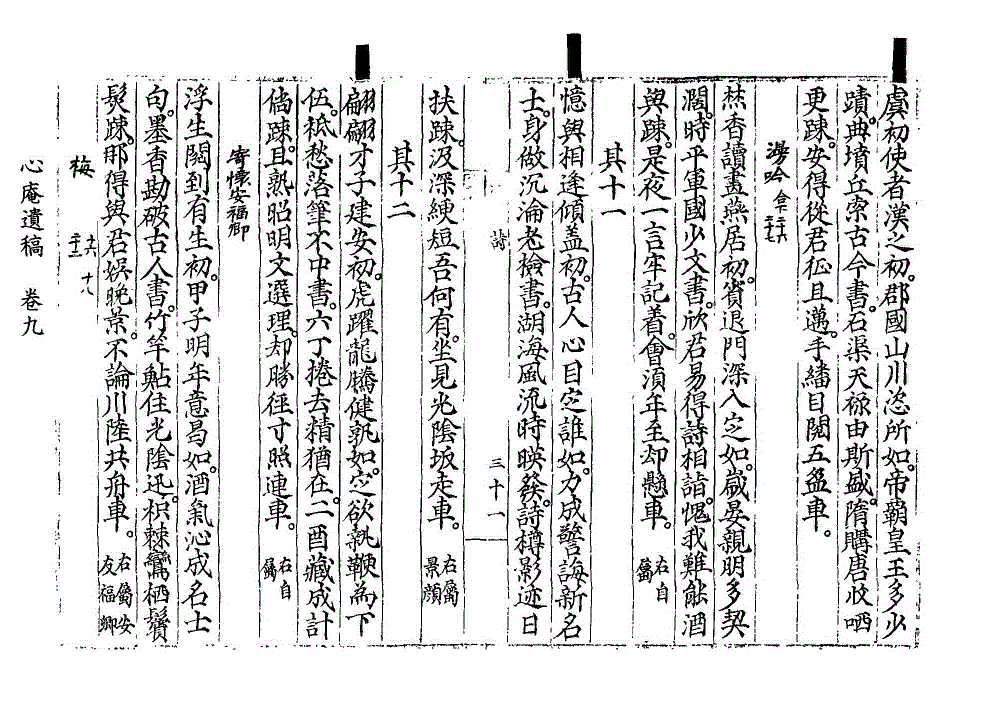 虞初使者漢之初。郡國山川恣所如。帝霸皇王多少
蹟。典墳丘索古今書。石渠天祿由斯盛。隋購唐收哂
更踈。安得從君征且邁。手繙目閱五盈車。
漫吟
爇香讀畫燕居初。賓退門深入定如。歲晏親朋多契
濶。時平軍國少文書。欣君易得詩相詣。愧我難能酒
與踈。是夜一言牢記着。會須年至却懸車。右自屬
其十一
憶與相逢傾盖初。古人心目定誰如。力成警誨新名
士。身做沉淪老檢書。湖海風流時暎發。詩樽影迹日
詩 三十一
扶踈。汲深綆短吾何有。坐見光陰坂走車。右屬景顔
其十二
翩翩才子建安初。虎躍龍騰健孰如。定欲執鞭爲下
伍。秪愁落筆不中書。六丁捲去精猶在。二酉藏成計
倘踈。且熟昭明文選理。却勝徑寸照連車。右自屬
寄懷安福卿
浮生閱到有生初。甲子明年意曷如。酒氣沁成名士
句。墨香勘破古人書。竹竿鮎住光陰迅。枳棘鸞栖鬢
髮踈。那得與君娛晚景。不論川陸共舟車。右屬安友福卿
梅
心庵遺稿 卷九